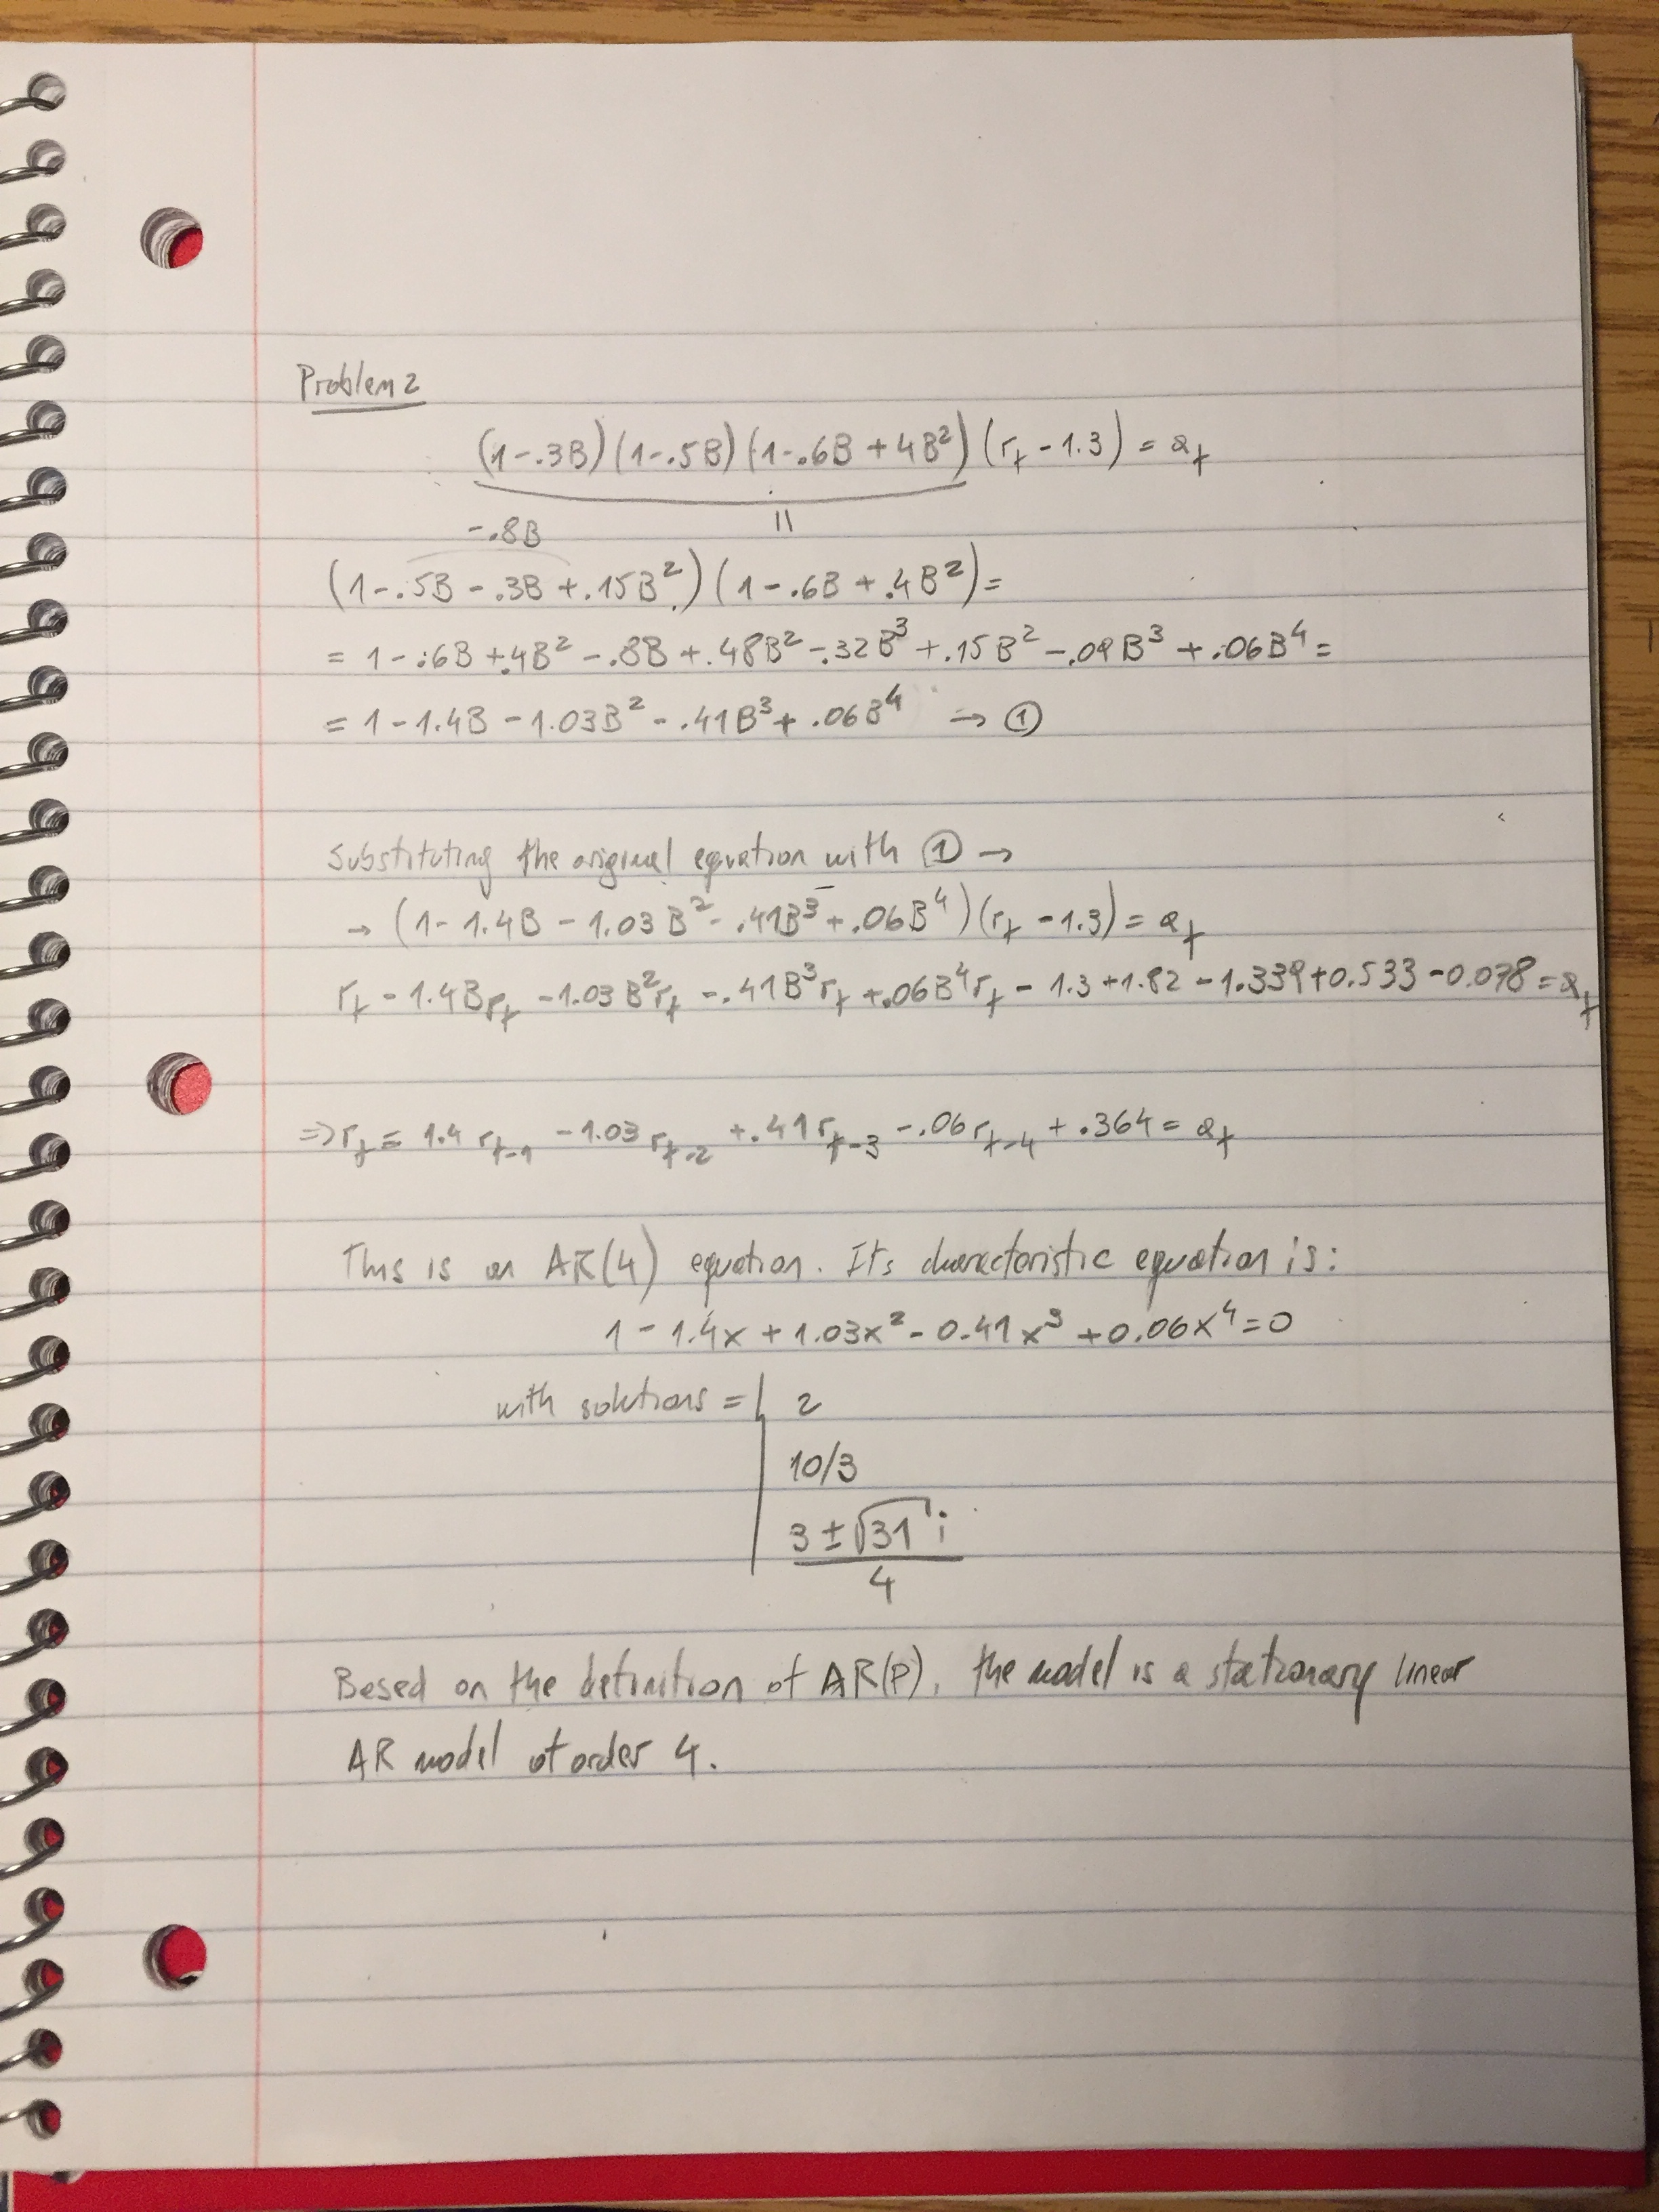 Problem 2
(1-.3B)(1-.5B)(1-.6B+4B²)(r_t-1.3) = a_t
-.8B
||
(1-.5B-.3B+.15B²)(1-.6B+.4B²)=
= 1-.6B+.4B²-.8B+.48B²-.32B³+.15B²-.09B³+.06B⁴=
= 1-1.4B-1.03B²-.41B³+.06B⁴ → ①
Substituting the original equation with ① →
→ (1-1.4B-1.03B²-.41B³+.06B⁴)(r_t-1.3)=a_t
r_t-1.4Br_t-1.03B²r_t-.41B³r_t+.06B⁴r_t-1.3+1.82-1.339+0.533-0.078=a_t
⇒ r_t = 1.4r_t-1 -1.03r_t-2 +.41r_t-3 -.06r_t-4 +.364 = a_t
This is an AR(4) equation. Its characteristic equation is:
1-1.4x+1.03x²-0.41x³+0.06x⁴=0
with solutions = 2
10/3
3±√31 i
4
Based on the definition of AR(P), the model is a stationary linear
AR model of order 4.